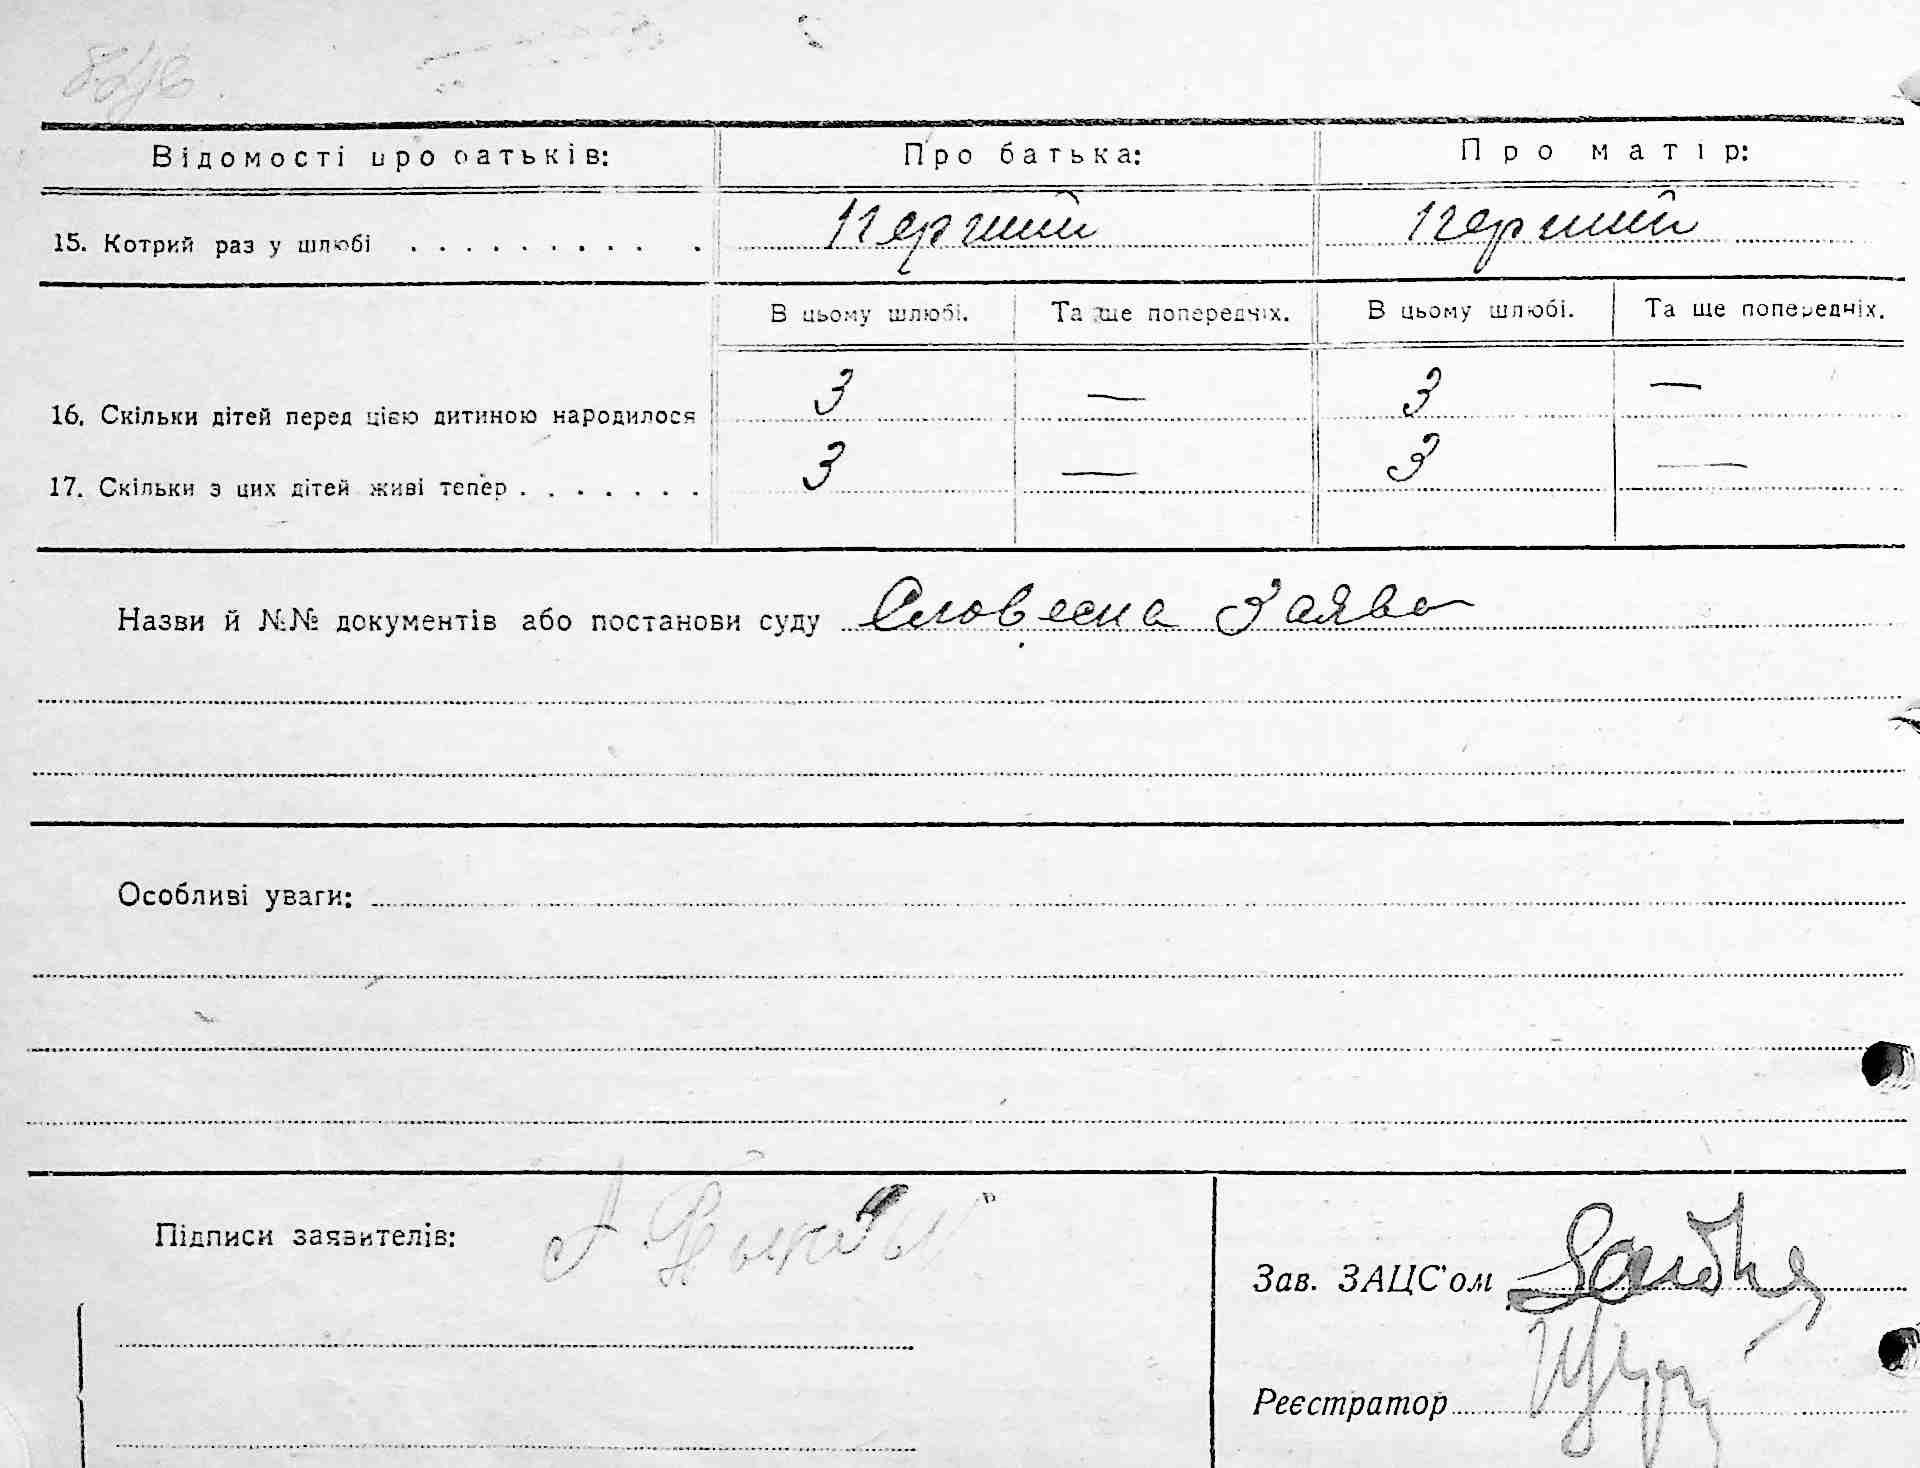 Відомості про батьків: Про батька: Про матір:
15. Котрий раз у шлюбі . . . . . . . . . . Перший Перший
В цьому шлюбі. Та ще попередніх. В цьому шлюбі. Та ще попередніх.
16. Скільки дітей перед цією дитиною народилося 3 — 3 —
17. Скільки з цих дітей живі тепер . . . . . . . 3 — 3 —
Назви й №№ документів або постанови суду Словесна Заява
Особливі уваги:
Підписи заявителів:
Зав. ЗАЦС'ом
Реєстратор